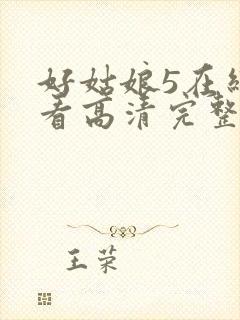 好姑娘5在
看高清完整
王荣